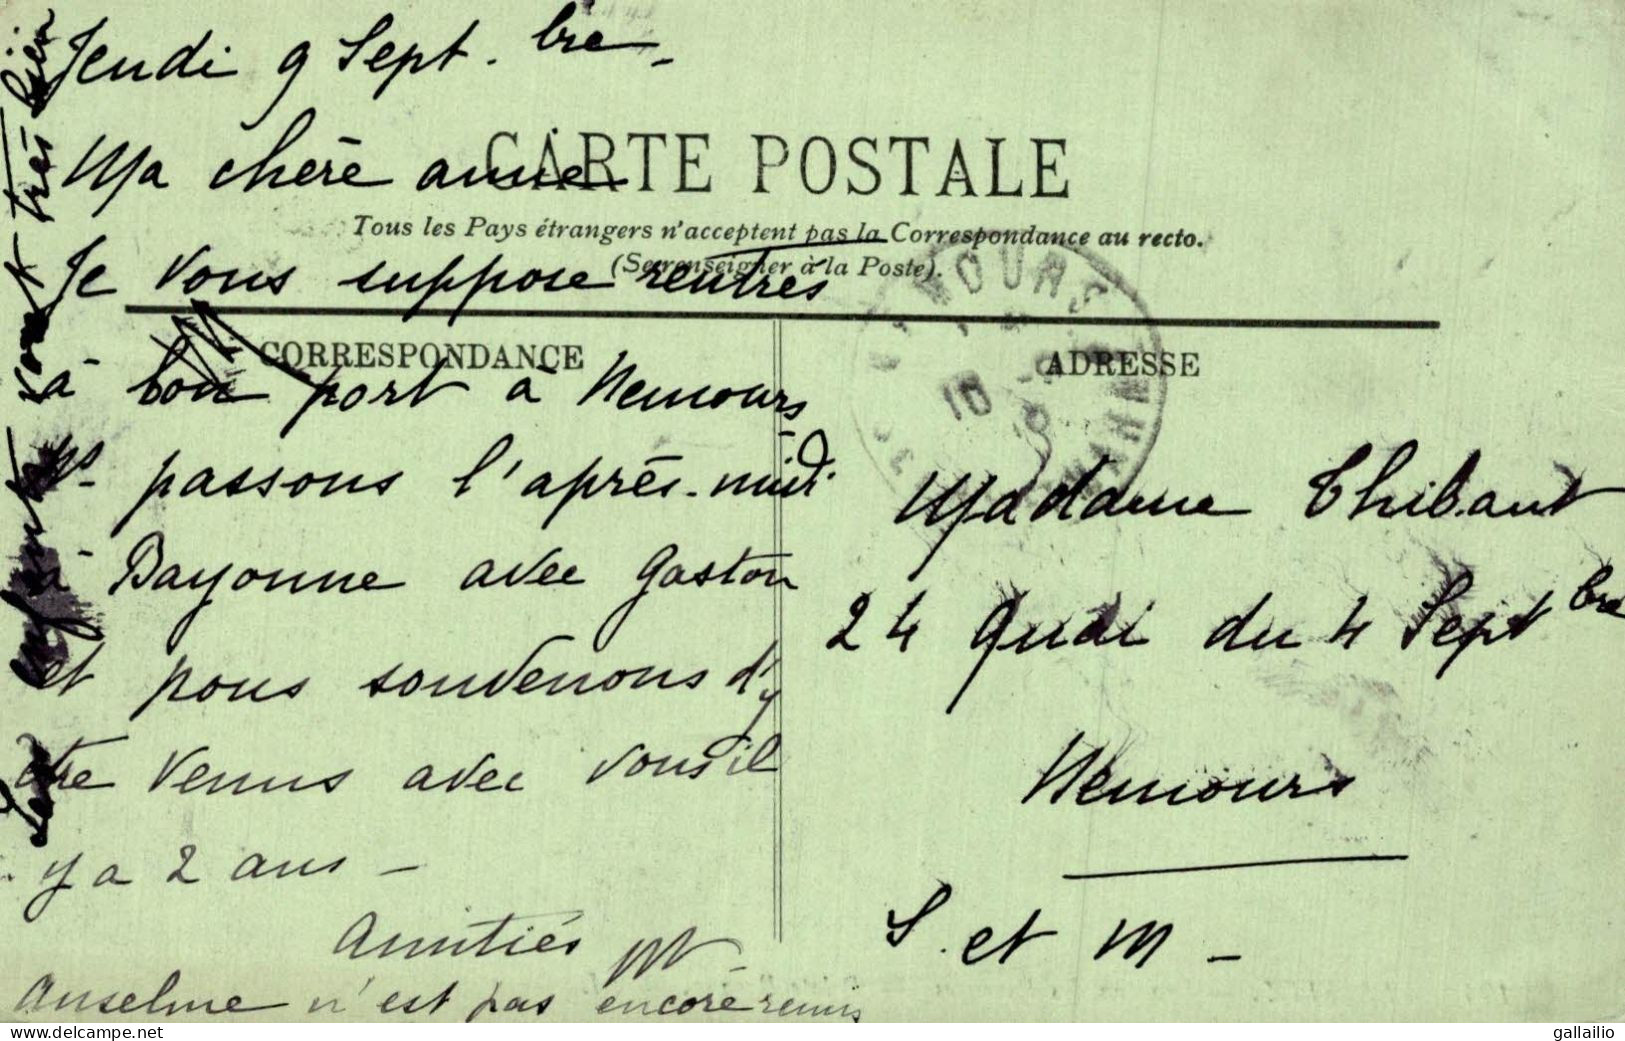 Jeudi 9 Sept.bre -
Ma chère amie
CARTE POSTALE
Tous les Pays étrangers n'acceptent pas la Correspondance au recto.
(Se renseigner à la Poste).
Je vous suppose rentrés
CORRESPONDANCE
à bon port à Nemours
Ns passons l'après-midi
à Bayonne avec Gaston
et nous souvenons d'y
etre venus avec vous il
y a 2 ans -
Amitiés M -
Anselme n'est pas encore remis
Les enfants vont très bien
ADRESSE
NEMOURS
10
MARNE
Madame Thibaut
24 Quai du 4 Septbre
Nemours
S. et M -
www.delcampe.net
gallailio